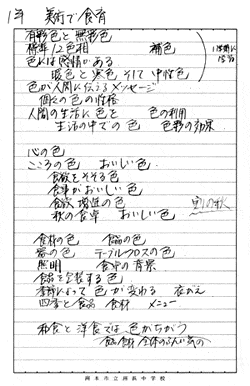 1年 美術で食育
有彩色と無彩色
標準12色相 補色
色には感情がある
暖色と寒色 そして中性色
色が人間に伝えるメッセージ
個々の色の性格
人間の生活に色と 色の利用
生活の中での色 色彩の効果
心の色
こころの色 おいしい色
食欲をそそる色
食事がおいしい色
食欲増進の色
秋の食卓 おいしい色
実りの秋
食材の色 食品の色
器の色 テーブルクロスの色
照明 食卓の背景
食品を企装する色
季節によって色が変わる 衣がえ
四季と食品 食材 メニュー
和食と洋食では色がちがう
食材 全体の
洲本市立洲浜中学校